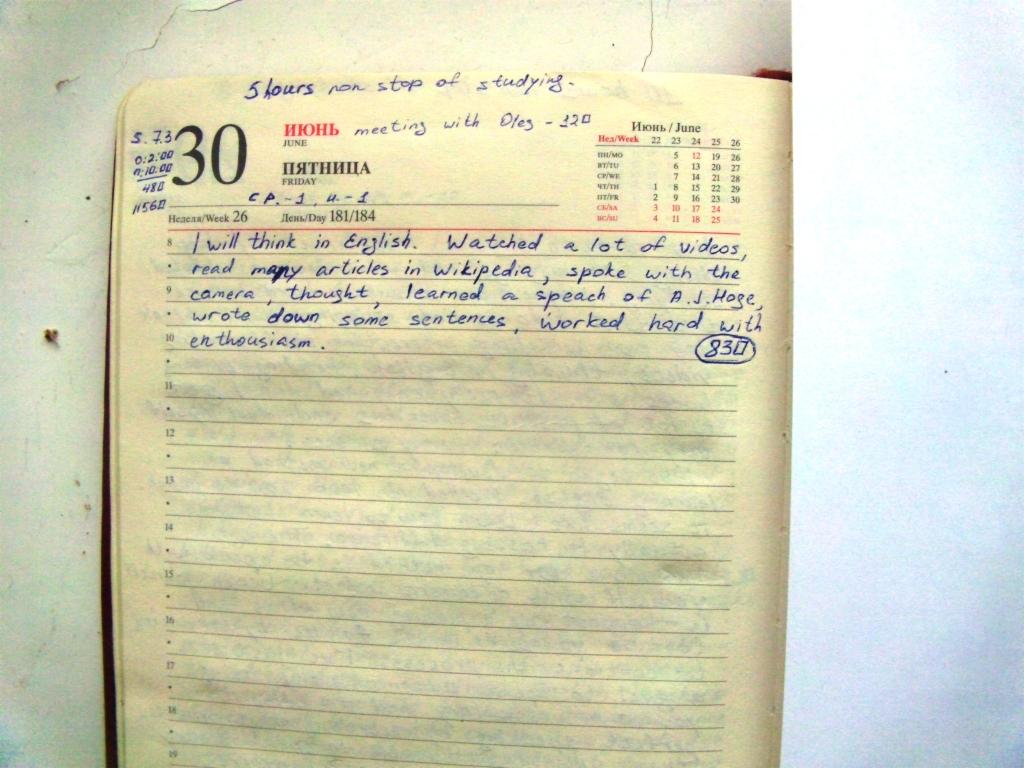 5 hours non stop of studying.
30 ИЮНЬ meeting with Oleg - 12
JUNE
ПЯТНИЦА
FRIDAY
Ср.-1, и.-1
Неделя/Week 26 День/Day 181/184
s. 7.3
0:2:00
n:10:00
Июнь / June
Нед/Week 22 23 24 25 26
ПН/MO 5 12 19 26
ВТ/TU 6 13 20 27
СР/WE 7 14 21 28
ЧТ/TH 1 8 15 22 29
ПТ/FR 2 9 16 23 30
СБ/SA 3 10 17 24
ВС/SU 4 11 18 25
8 I will think in English. Watched a lot of videos,
read many articles in Wikipedia, spoke with the
9 camera, thought, learned a speach of A.J.Hoge,
wrote down some sentences, worked hard with
10 enthousiasm.
11
12
13
14
15
16
17
18
19